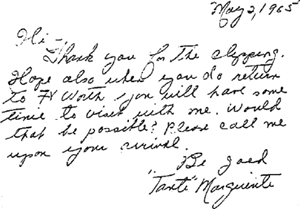 May 2, 1965
Hi -,
Thank you for the clipping.
Hope also when you do return
to Ft Worth you will have some
time to visit with me. Would
that be possible? Please call me
upon your arrival.
Be good
"Tante" Marguerite